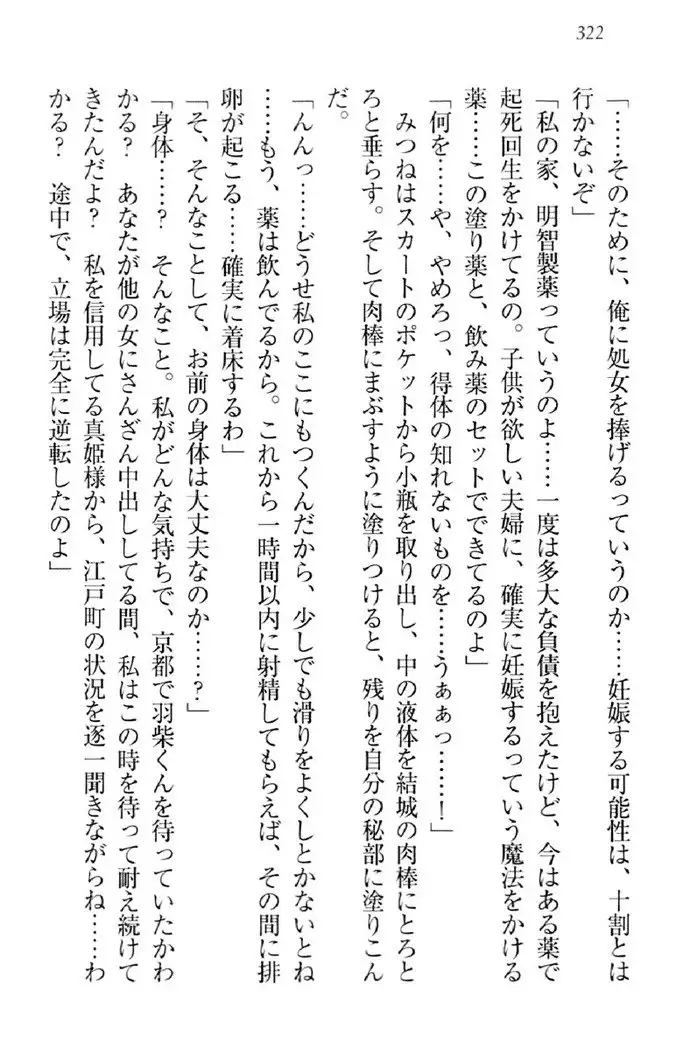 322
「……そのために、俺に処女を捧げるっていうのか……妊娠する可能性は、十割とは
行かないぞ」
「私の家、明智製薬っていうのよ……一度は多大な負債を抱えたけど、今はある薬で
起死回生をかけてるの。子供が欲しい夫婦に、確実に妊娠するっていう魔法をかける
薬……この塗り薬と、飲み薬のセットでできてるのよ」
「何を……や、やめろっ、得体の知れないものを……うぁぁっ……！」
　みつねはスカートのポケットから小瓶を取り出し、中の液体を結城の肉棒にとろと
ろと垂らす。そして肉棒にまぶすように塗りつけると、残りを自分の秘部に塗りこん
だ。
「んんっ……どうせ私のここにもつくんだから、少しでも滑りをよくしとかないとね
……もう、薬は飲んでるから。これから一時間以内に射精してもらえば、その間に排
卵が起こる……確実に着床するわ」
「そ、そんなことして、お前の身体は大丈夫なのか……？」
「身体……？　そんなこと。私がどんな気持ちで、京都で羽柴くんを待っていたかわ
かる？　あなたが他の女にさんざん中出ししてる間、私はこの時を待って耐え続けて
きたんだよ？　私を信用してる真姫様から、江戸町の状況を逐一聞きながらね……わ
かる？　途中で、立場は完全に逆転したのよ」